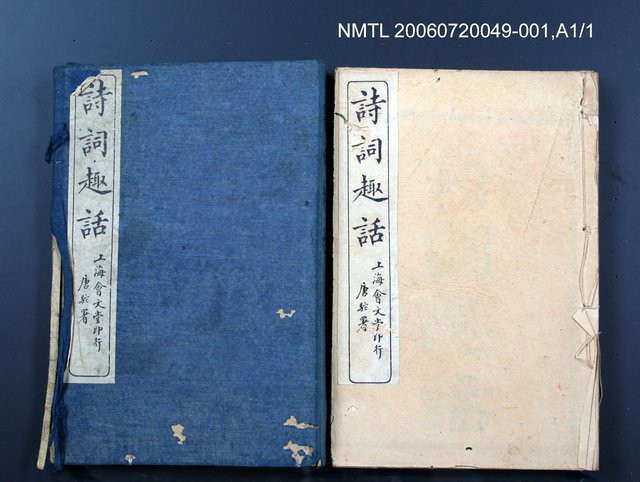 NMTL 20060720049-001,A1/1
詩詞趣話
上海會文堂印行
詩詞趣話
上海會文堂印行